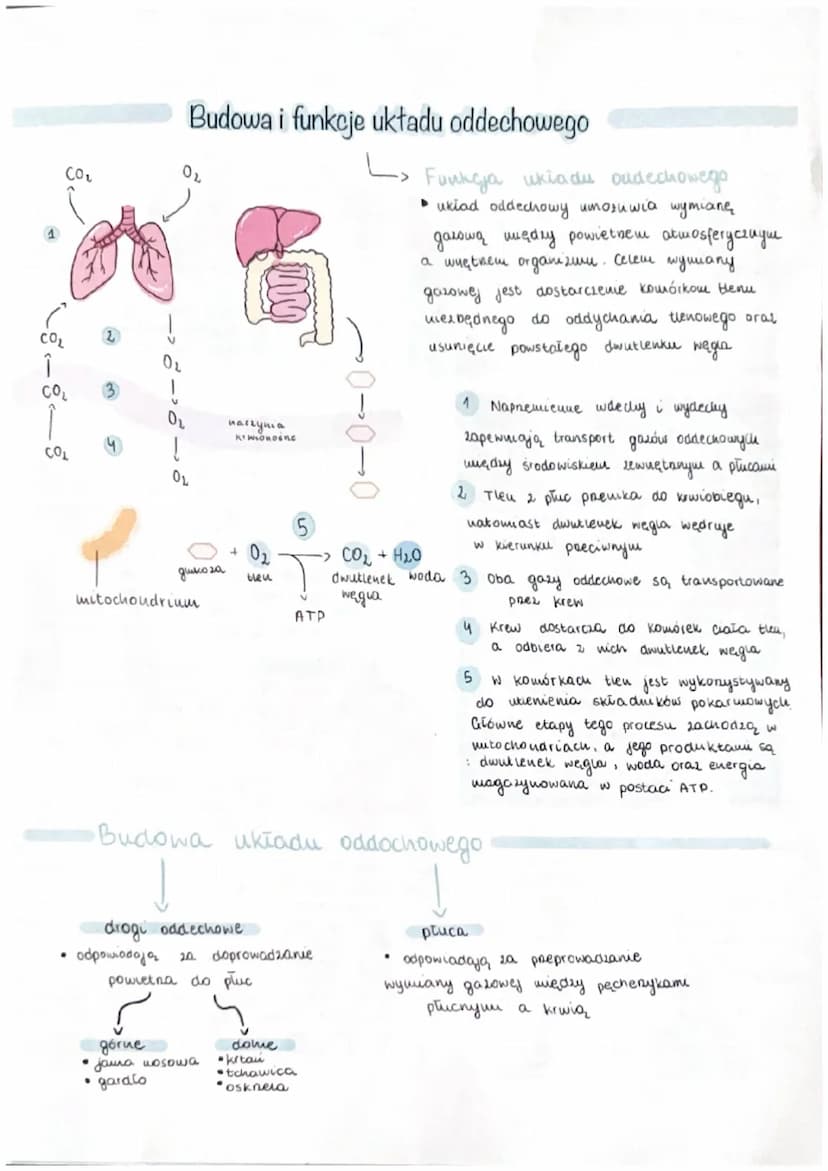 Budowa i funkcje układu oddechowego
CO₂
O₂
1
CO₂
2
O₂
CO₂
3
O₂
naczynia
krwionośne
CO₂
4
O₂
mitochondrium
5
+ O₂ → CO₂ + H₂O
glukoza
tlen
dwutlenek
węgla
woda
ATP
Funkcja układu oddechowego
układ oddechowy umożliwia wymianę
gazową między powietrzem atmosferycznym
a wnętrzem organizmu. Celem wymiany
gazowej jest dostarczenie komórkom tlenu
niezbędnego do oddychania tlenowego oraz
usunięcie powstałego dwutlenku węgla
1 Naprzemienne wdechy i wydechy
zapewniają transport gazów oddechowych
między środowiskiem zewnętrznym a płucami
2 Tlen z płuc przenika do krwiobiegu,
natomiast dwutlenek węgla wędruje
w kierunku przeciwnym
3 Oba gazy oddechowe są transportowane
przez krew
4 Krew dostarcza do komórek ciała tlen,
a odbiera z nich dwutlenek węgla
5 W komórkach tlen jest wykorzystywany
do utlenienia składników pokarmowych.
Główne etapy tego procesu zachodzą w
mitochondriach, a jego produktami są
: dwutlenek węgla, woda oraz energia
magazynowana w postaci ATP.
Budowa układu oddochowego
drogi oddechowe
• odpowiadają za doprowadzanie
powietrza do płuc
górne
• jama nosowa
• gardło
dolne
• krtań
• tchawica
• oskrzela
płuca
• odpowiadają za przeprowadzanie
wymiany gazowej między pęcherzykami
płucnymi a krwią